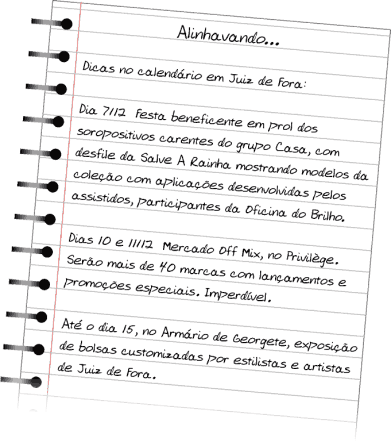 Alinhavando...
Dicas no calendário em Juiz de Fora:
Dia 7/12 Festa beneficente em prol dos
soropositivos carentes do grupo Casa, com
desfile da Salve A Rainha mostrando modelos da
coleção com aplicações desenvolvidas pelos
assistidos, participantes da Oficina do Brilho.
Dias 10 e 11/12 Mercado Off Mix, no Privilège.
Serão mais de 40 marcas com lançamentos e
promoções especiais. Imperdível.
Até o dia 15, no Armário de Georgete, exposição
de bolsas customizadas por estilistas e artistas
de Juiz de Fora.